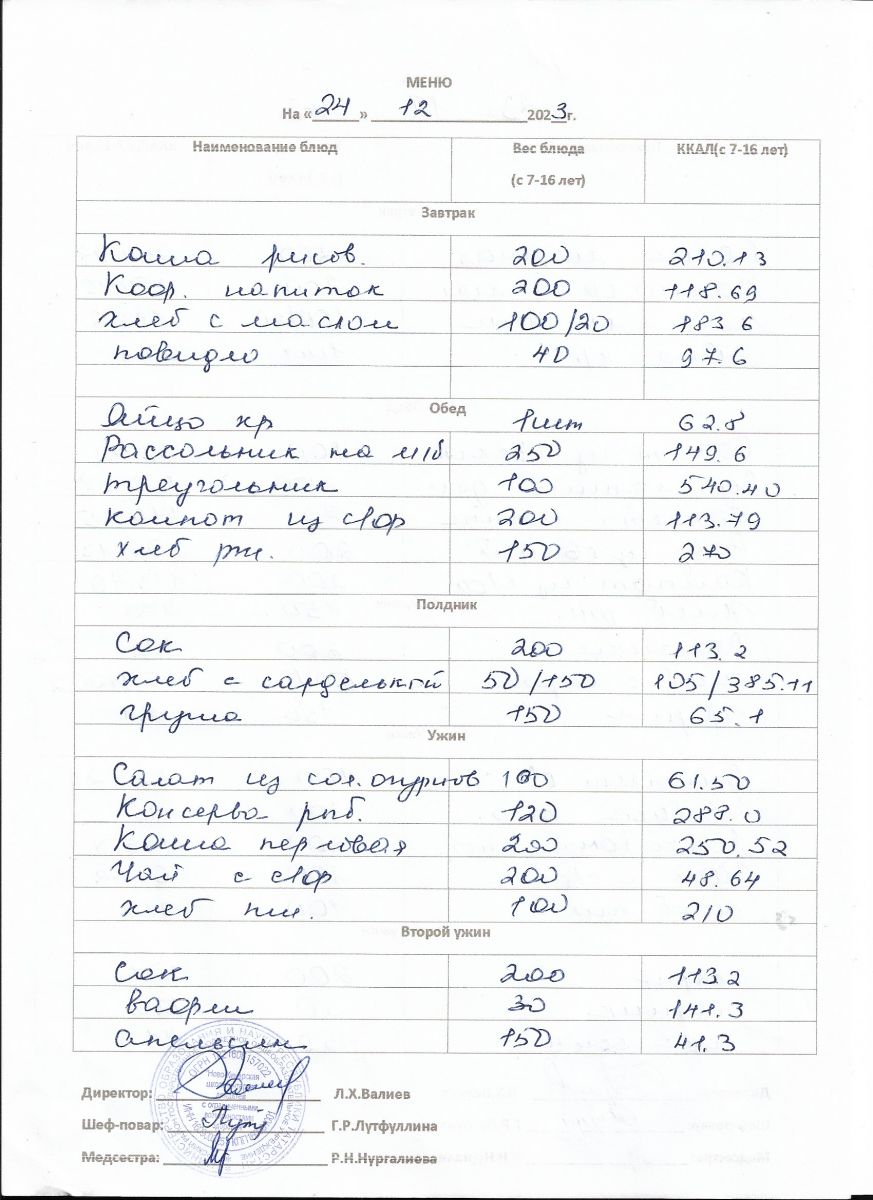 МЕНЮ
На «24» 12 2023г.
Наименование блюд Вес блюда (с 7-16 лет) ККАЛ(с 7-16 лет)
Завтрак
Каша рисов. 200 210.13
Коф. напиток 200 118.69
хлеб с маслом 100/20 183 6
повидло 40 97.6
Обед
Яйцо кр 1шт 62.8
Рассольник на м/б 250 149.6
треугольник 100 540.40
компот из с/фр 200 113.79
хлеб рж. 150 270
Полдник
Сок 200 113.2
хлеб с сарделькой 50/150 105/385.11
груша 150 65.1
Ужин
Салат из сол. огурцов 100 61.50
Консерва рыб. 120 288.0
Каша перловая 200 250.52
Чай с с/фр 200 48.64
хлеб пш. 100 210
Второй ужин
Сок 200 113.2
вафли 30 141.3
апельсин 150 41.3
Директор: Л.Х.Валиев
Шеф-повар: Г.Р.Лутфуллина
Медсестра: Р.Н.Нургалиева